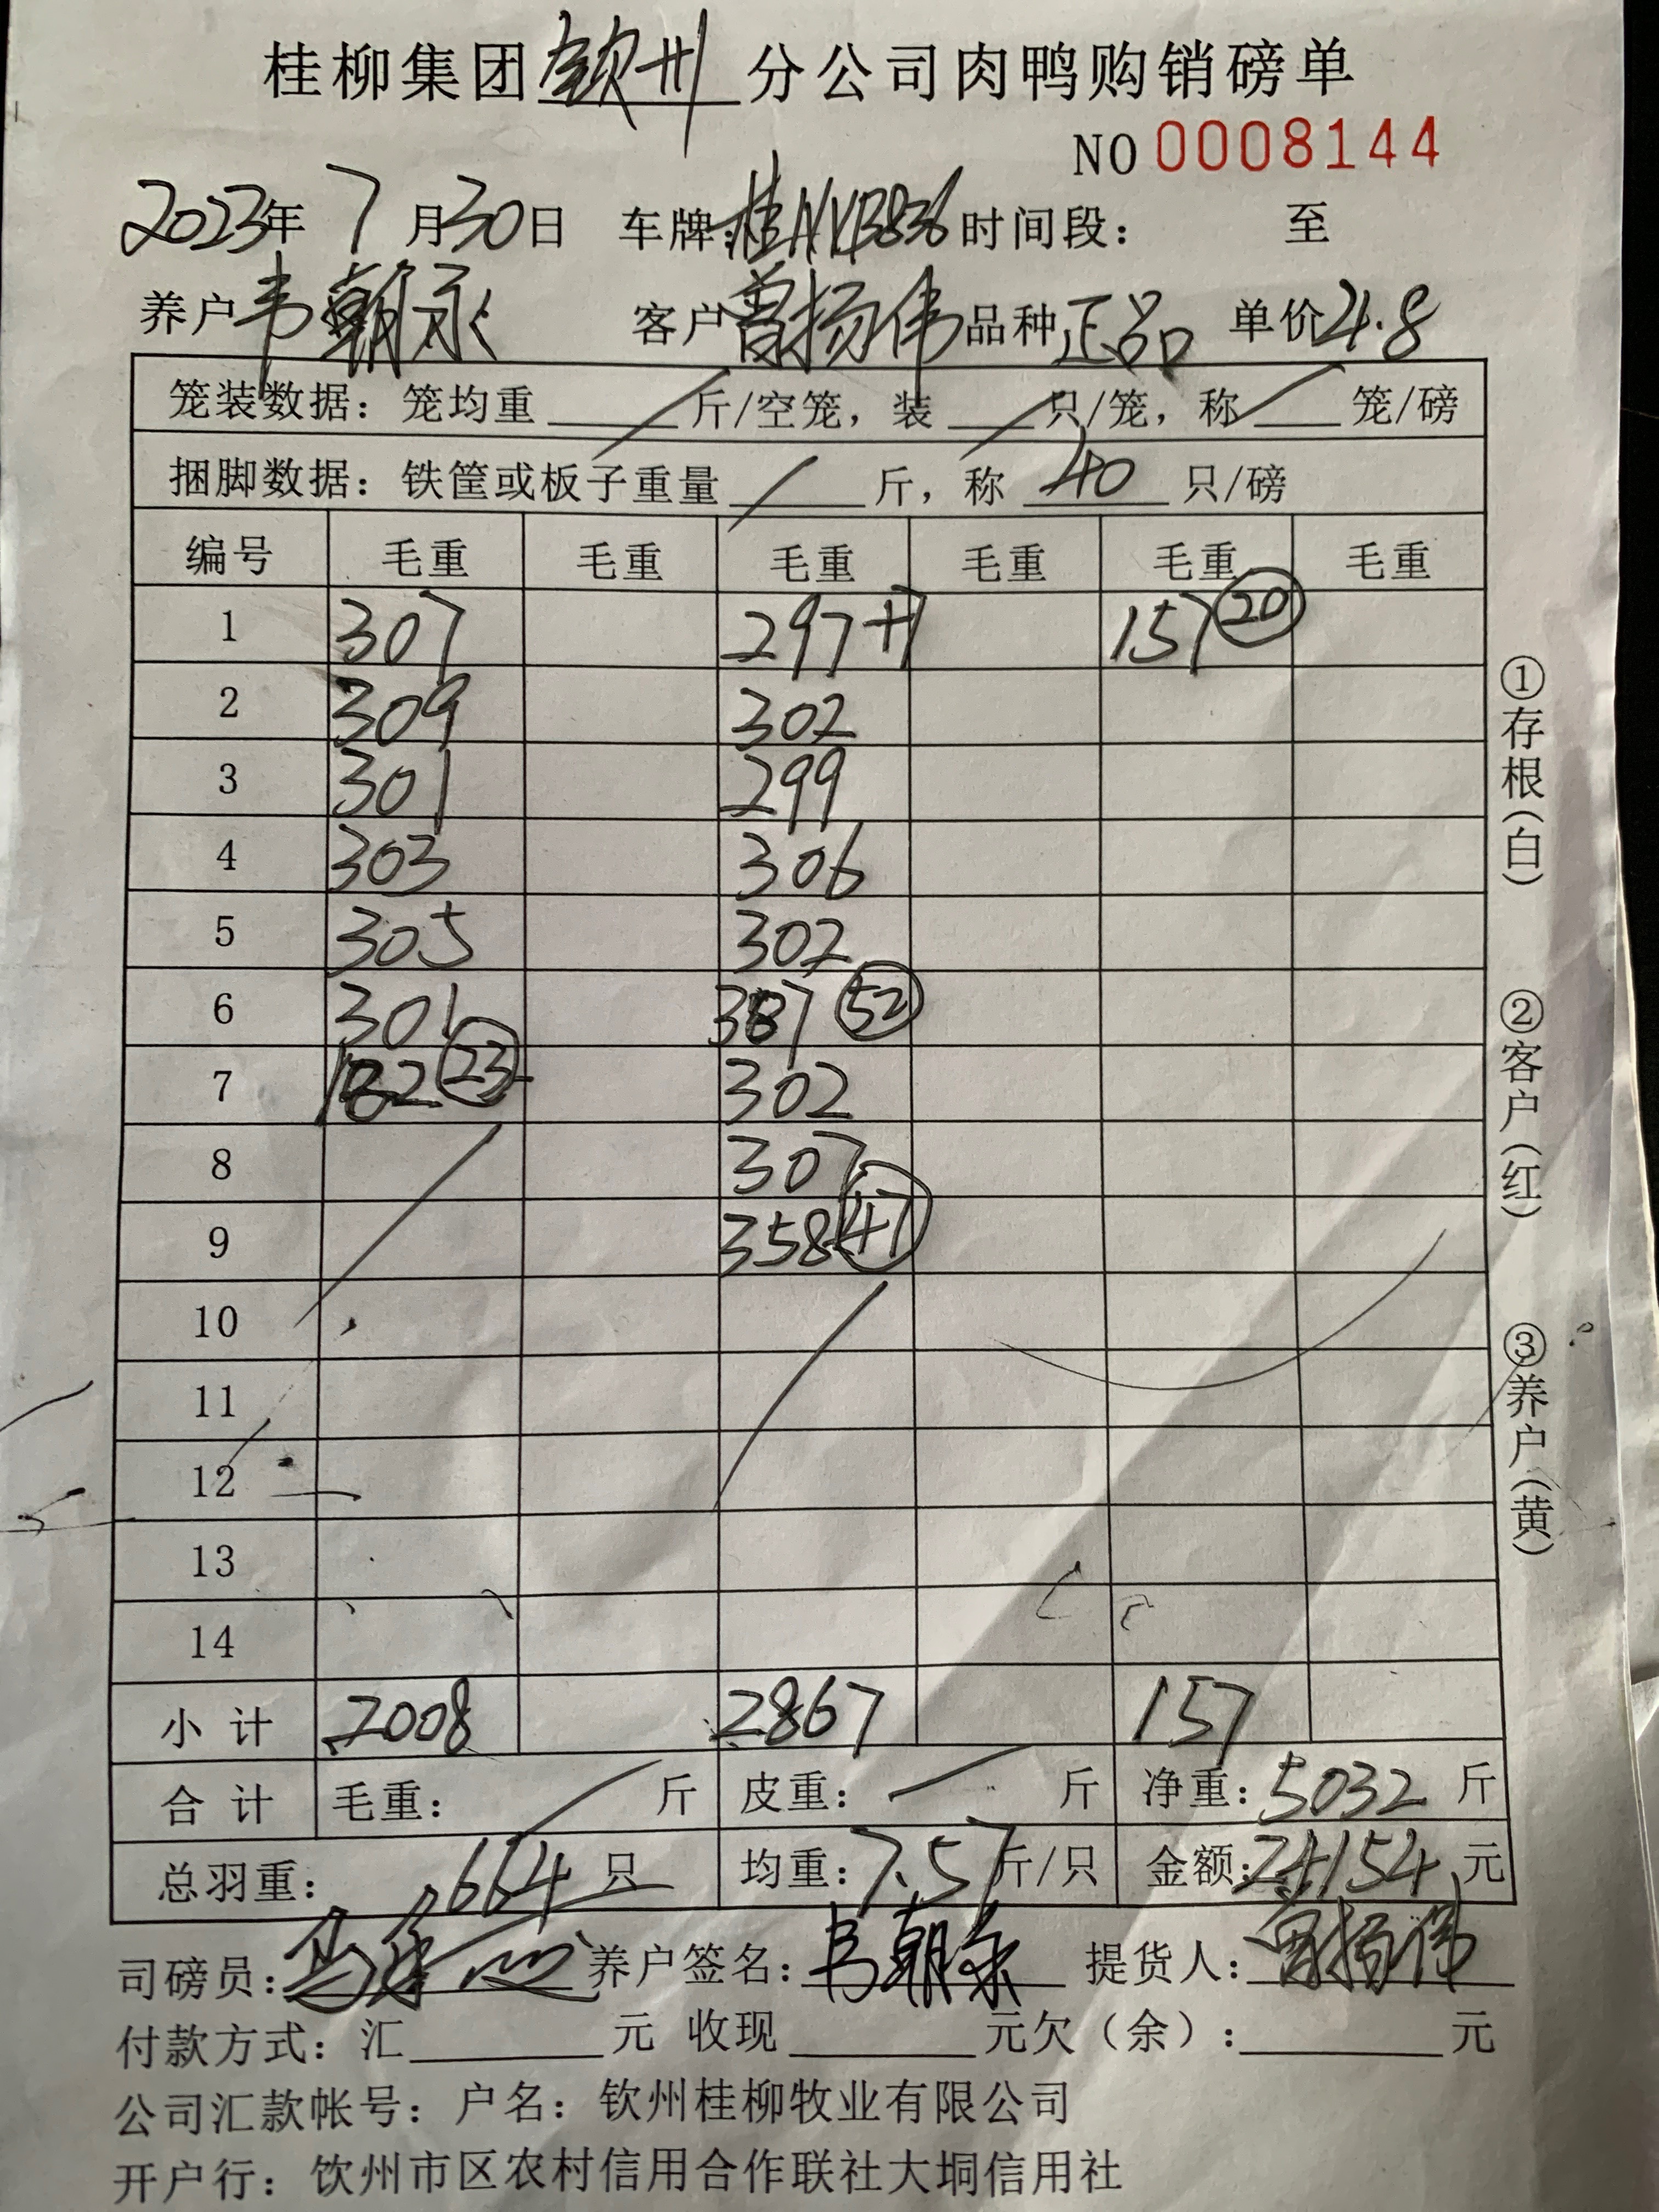 桂柳集团钦州分公司肉鸭购销磅单
NO 0008144
2023年 7月30日 车牌:桂NYB836 时间段: 至
养户韦朝永 客户曾扬伟 品种正品 单价4.8
笼装数据:笼均重 / 斤/空笼,装 / 只/笼,称 / 笼/磅
捆脚数据:铁筐或板子重量 / 斤,称 40 只/磅
编号 毛重 毛重 毛重 毛重 毛重 毛重
1 307 297+7 157 ⑳
2 309 302
3 301 299
4 303 306
5 305 302
6 301 387 (52)
7 182 (23) 302
8 307
9 358 (47)
10
11
12
13
14
小计 2008 2867 157
合计 毛重: / 斤 皮重: / 斤 净重:5032 斤
总羽重: 664 只 均重:7.57斤/只 金额:24154元
司磅员: 养户签名:韦朝永 提货人:曾扬伟
付款方式:汇 元 收现 元欠(余): 元
公司汇款帐号:户名:钦州桂柳牧业有限公司
开户行:钦州市区农村信用合作联社大垌信用社
①存根(白)
②客户(红)
③养户(黄)